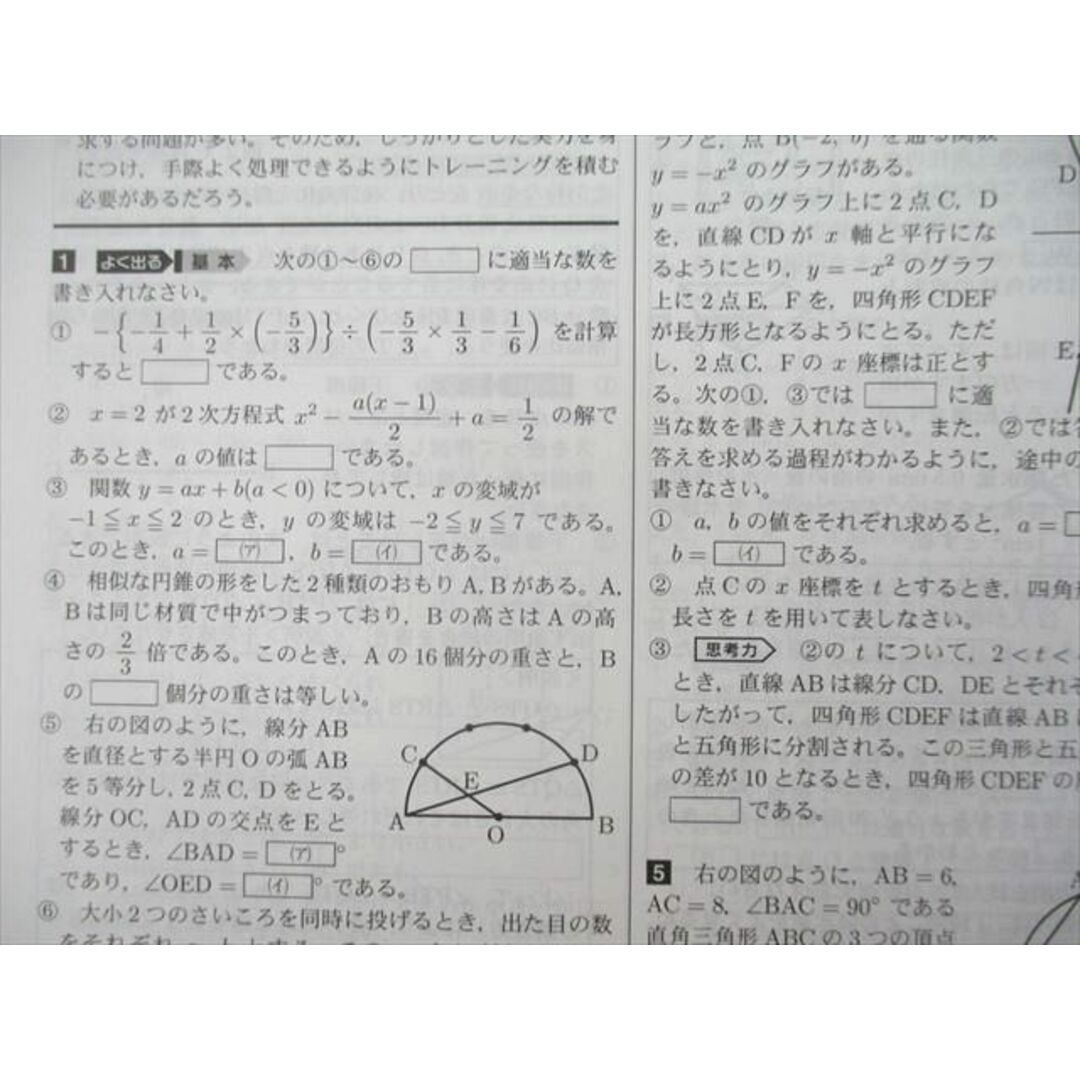 求する問題が多い。そのため，しっかりとした実力を身
につけ，手際よく処理できるようにトレーニングを積む
必要があるだろう。
1 よく出る 基本 次の①〜⑥の □ に適当な数を
書き入れなさい。
① −{−1/4 + 1/2 × (−5/3)} ÷ (−5/3 × 1/3 − 1/6) を計算
すると □ である。
② x = 2 が2次方程式 x² − a(x − 1)/2 + a = 1/2 の解で
あるとき，a の値は □ である。
③ 関数 y = ax + b(a < 0) について，x の変域が
−1 ≦ x ≦ 2 のとき，y の変域は −2 ≦ y ≦ 7 である。
このとき，a = (ア)，b = (イ) である。
④ 相似な円錐の形をした2種類のおもり A, B がある。A,
B は同じ材質で中がつまっており，B の高さは A の高
さの 2/3 倍である。このとき，A の 16 個分の重さと，B
の □ 個分の重さは等しい。
⑤ 右の図のように，線分 AB
を直径とする半円 O の弧 AB
を5等分し，2点 C, D をとる。
線分 OC，AD の交点を E と
するとき，∠BAD = (ア)°
であり，∠OED = (イ)° である。
C
D
E
A
O
B
⑥ 大小2つのさいころを同時に投げるとき，出た目の数
をそれぞれ
ラフと，点 B(−2, b) を通る関数
y = −x² のグラフがある。
y = ax² のグラフ上に2点 C，D
を，直線 CD が x 軸と平行にな
るようにとり，y = −x² のグラフ
上に2点 E，F を，四角形 CDEF
が長方形となるようにとる。ただ
し，2点 C，F の x 座標は正とす
る。次の①，③では □ に適
当な数を書き入れなさい。また，②では
答えを求める過程がわかるように，途中の
書きなさい。
① a，b の値をそれぞれ求めると，a =
b = (イ) である。
② 点 C の x 座標を t とするとき，四角
長さを t を用いて表しなさい。
③ 思考力 ②の t について，2 < t <
とき，直線 AB は線分 CD，DE とそれぞ
したがって，四角形 CDEF は直線 AB
と五角形に分割される。この三角形と五
の差が 10 となるとき，四角形 CDEF の
□ である。
D
E
5 右の図のように，AB = 6,
AC = 8，∠BAC = 90° である
直角三角形 ABC の3つの頂点